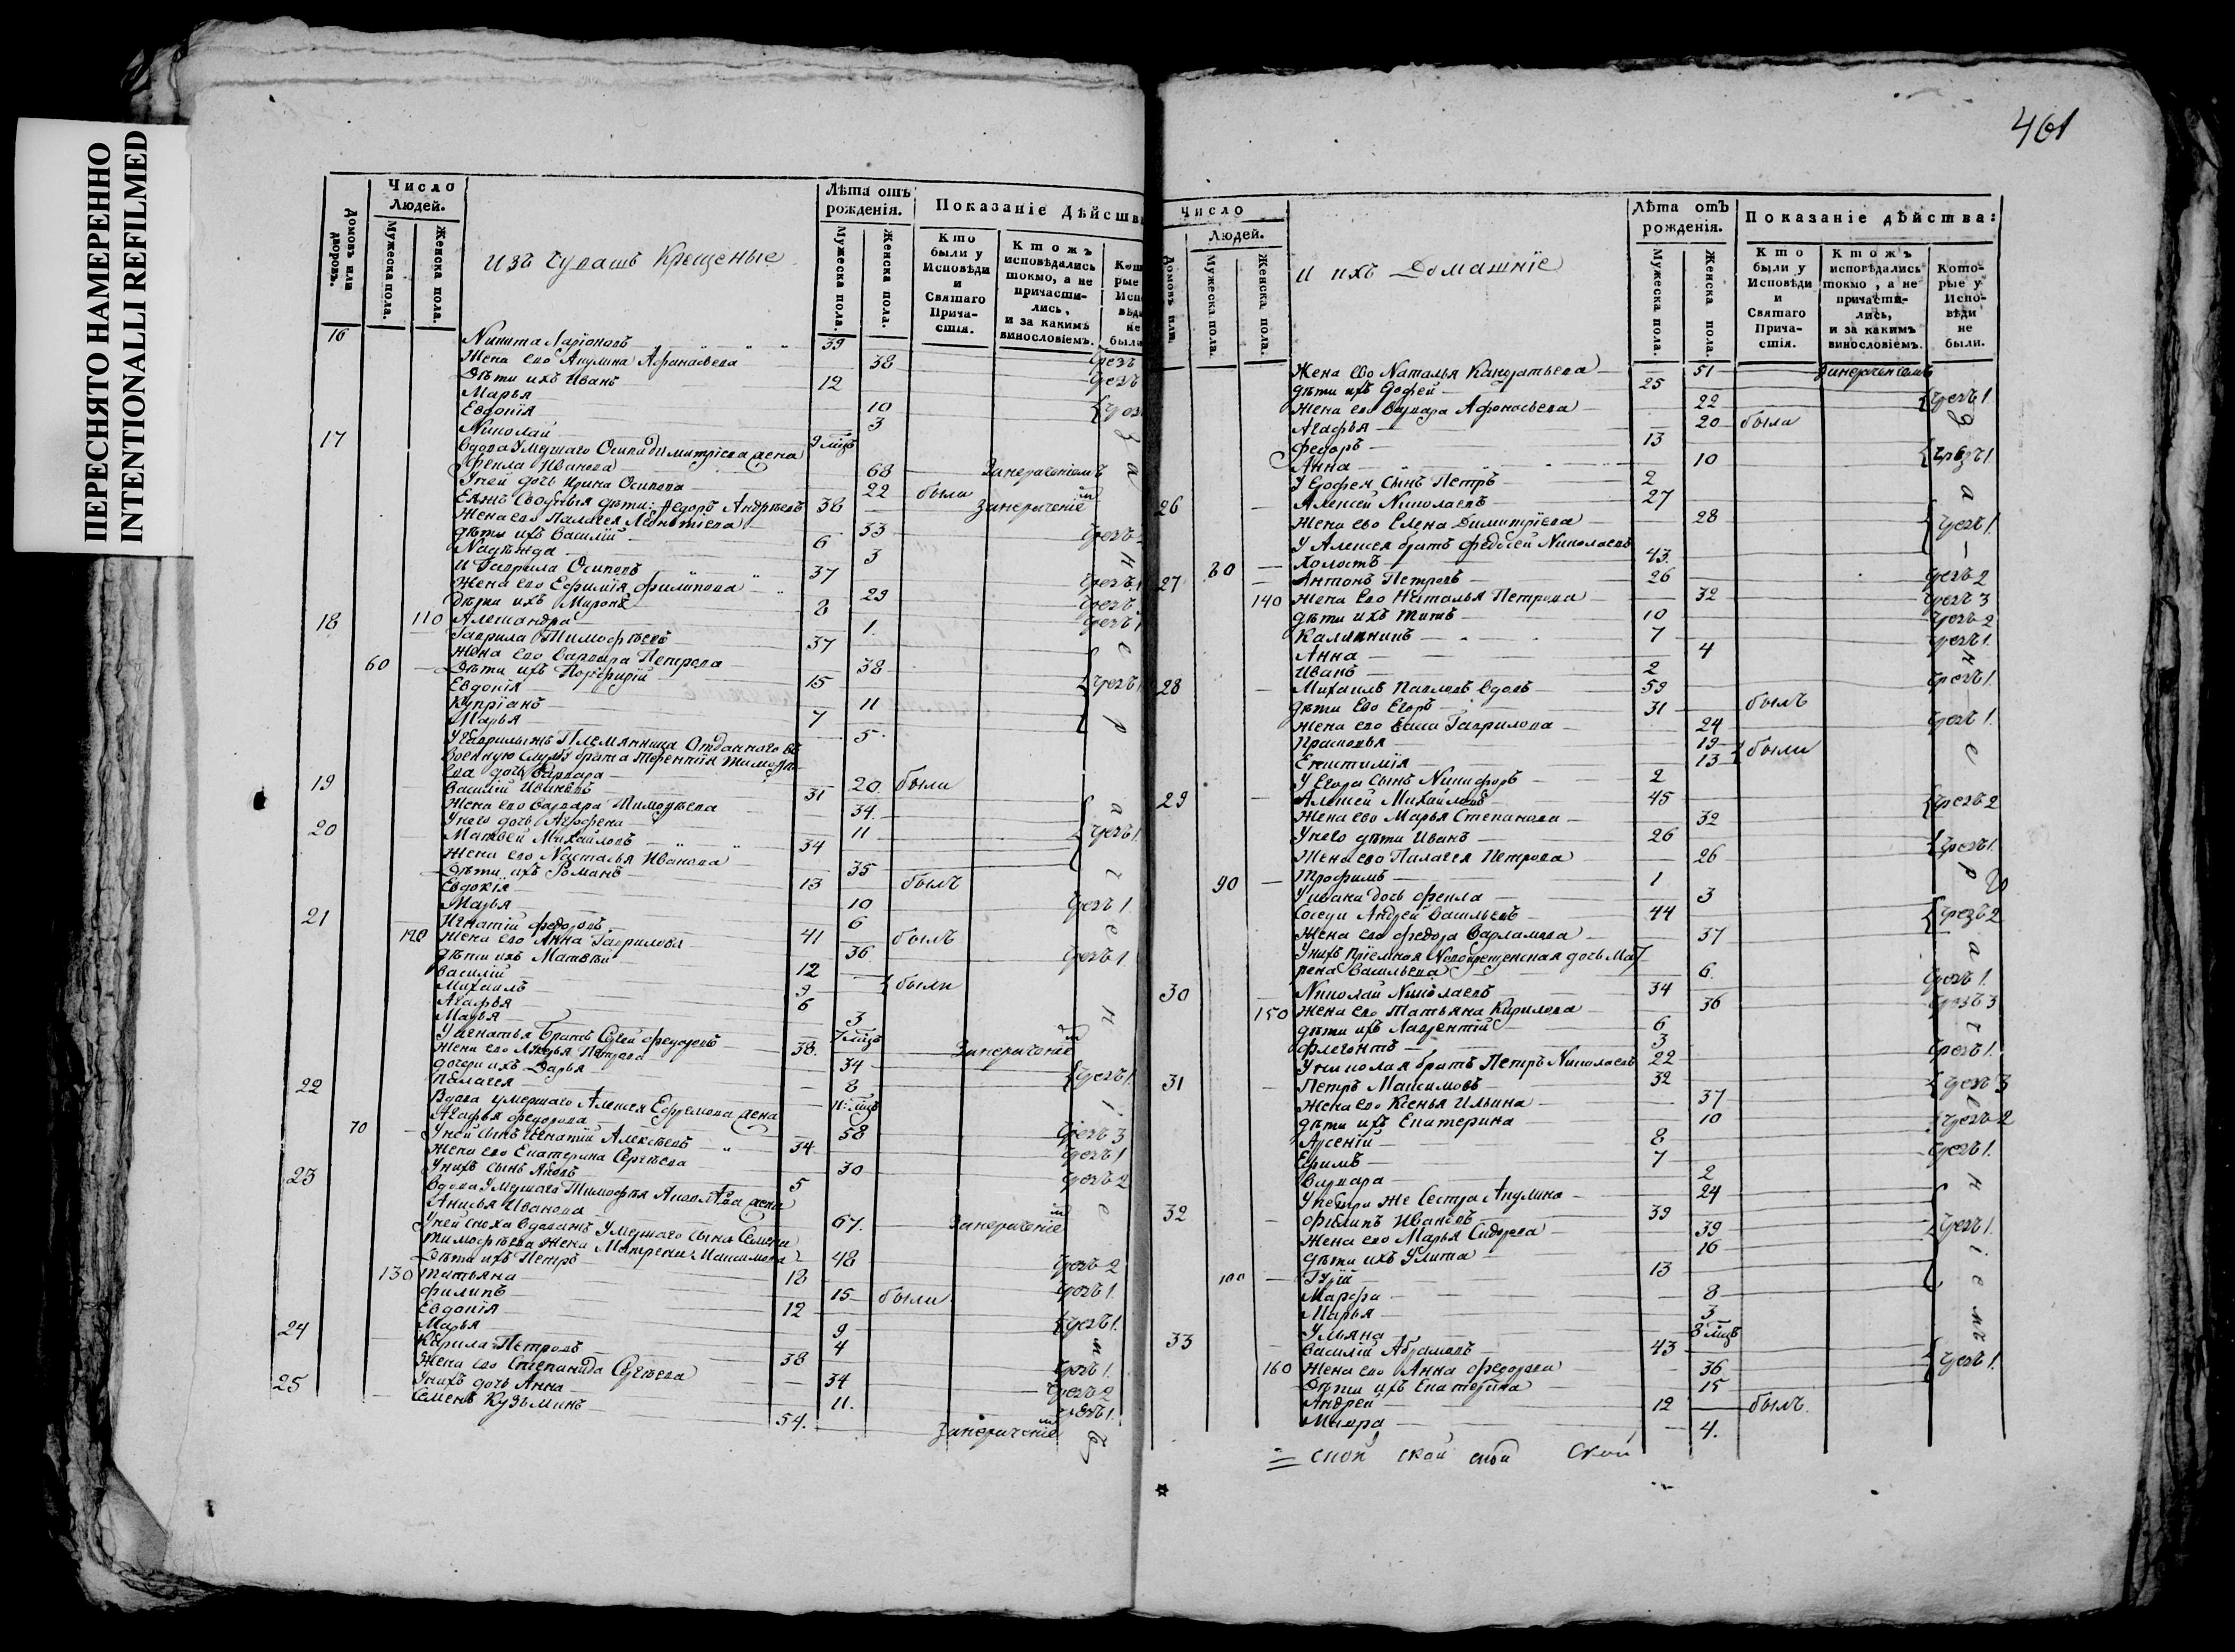 ПЕРЕСНЯТО НАМЕРЕННО
INTENTIONALLI REFILMED
461
Число Людей.
Домовъ или дворовъ.
Мужеска пола.
Женска пола.
Изъ чувашъ Крещеные
Лѣта отъ рожденія.
Мужеска пола.
Женска пола.
Показаніе Дѣйств
Кто были у Исповѣди и Святаго Причастія.
Ктожъ исповѣдались токмо, а не причастились, и за какимъ винословіемъ.
16 Никита Ларіоновъ 39
Жена его Акулина Афанасьева 38
Дѣти ихъ Иванъ 12
Марья 10
Евдокія 3
Николай 9 мцъ
17 Вдова Умершаго Осипа Димитріева жена
Фекла Иванова 68
У ней дочь Ирина Осипова 22 были
Дѣти: Федоръ Андреевъ 38
Жена его Палагея Леонтіева 33
Дѣти ихъ Василій 6
Надежда 3
и Гаврила Осиповъ 37
Жена его Ефимія Филипова 29
Дѣти ихъ Миронъ 8
110 Александра 1.
18 Гаврила Тимофеевъ 37
Жена его Варвара Петрова 38
60 Дѣти ихъ Порфирій 15
Евдокія 11
Купріанъ 7
Марья 5
У Гаврилы жъ Племянница Отданнаго въ
Военную Службу брата Терентія Тимофе
ева дочь Варвара 20 были
19 Василій Ивановъ 31
Жена его Варвара Тимофеева 34.
У него дочь Аграфена 11
20 Матвей Михайловъ 34
Жена его Настасья Иванова 35
Дѣти ихъ Романъ 13 былъ
Евдокія 10
Марья 6
21 Игнатій Федоровъ 41 былъ
120 Жена его Анна Гаврилова 36
Дѣти ихъ Матвѣй 12
Василій 9 были
Михаилъ 6
Агафья 3
Марья 7 мцъ
У Игнатья Братъ Сергѣй Федоровъ 38.
Жена его Петрова 34
дочери ихъ Дарья 8
Палагея
22 Вдова умершаго Алексея Ефремова жена
Агафья Федорова 58
70 У ней сынъ Игнатій Алексѣевъ 34.
Жена его Екатерина Сергѣева 30
У нихъ сынъ Яковъ 5
23 Вдова Умершаго Тимофѣя жена
Анисья Иванова 67.
У ней сноха вдова жъ Умершаго сына Семена
Тимофѣева жена Матрена Максимова 48
Дѣти ихъ Петръ 18
130 Татьяна 15 были
Филипъ 12
Евдокія 9
Марья 4
24 Кирила Петровъ 38
Жена его Степанида Сергѣева 34
У нихъ дочь Анна 11.
25 Семенъ Кузьминъ 54.
Число Людей.
Домовъ или
Мужеска пола.
Женска пола.
и ихъ Домашніе
Лѣта отъ рожденія.
Мужеска пола.
Женска пола.
Показаніе дѣйства:
Кто были у Исповѣди и Святаго Причастія.
Ктожъ исповѣдались токмо, а не причастились, и за какимъ винословіемъ.
Которые у Исповѣди не были.
Жена его Наталья Кандратьева 51
дѣти ихъ Ерофей 25
Жена его Варвара Афонасьева 22
Агафья 20 были
Федоръ 13
Анна 10
У Ерофея сынъ Петръ 2
26 Алексей Николаевъ 27
Жена его Елена Димитріева 28
У Алексея братъ Федосей Николаевъ
80 Холостъ 43.
27 Антонъ Петровъ 26 чрезъ 2
140 Жена его Наталья Петрова 32 чрезъ 3
дѣти ихъ Титъ 10 чрезъ 2
Калинникъ 7 чрезъ 1.
Анна 4
Иванъ 2
28 Михаилъ Павловъ вдовъ 59 былъ
дѣти его Егоръ 31
Жена его Гаврилова 24
Прасковья 19
Епистимія 13 были
У Егора сынъ Никифоръ 2
29 Алексей Михайловъ 45
Жена его Марья Степанова 32
У него дѣти Иванъ 26
Жена его Палагея Петрова 26
90 Трофимъ 1
У Ивана дочь Фекла 3
Андрей Васильевъ 44
Жена его Федора Варламова 37
У нихъ пріемная Новокрещенская дочь Мат
рена Васильева 6.
30 Николай Николаевъ 34
150 Жена его Татьяна Кирилова 36
дѣти ихъ Лаврентій 6
Флегонтъ 3
У Николая братъ Петръ Николаевъ 22
31 Петръ Максимовъ 32
Жена его Ксенья Ильина 37
дѣти ихъ Екатерина 10
Арсеній 8
Ефимъ 7
Варвара 2
У Петра же Сестра Акулина 24
32 Филипъ Ивановъ 39
Жена его Марья Сидорова 39
дѣти ихъ Улита 16
100 Гурій 13
Марфа 8
Марья 3
Ульяна 8 мцъ
33 Василій Абрамовъ 43
160 Жена его Анна Федорова 36
Дѣти ихъ Екатерина 15
Андрей 12 былъ.
Мавра 4.